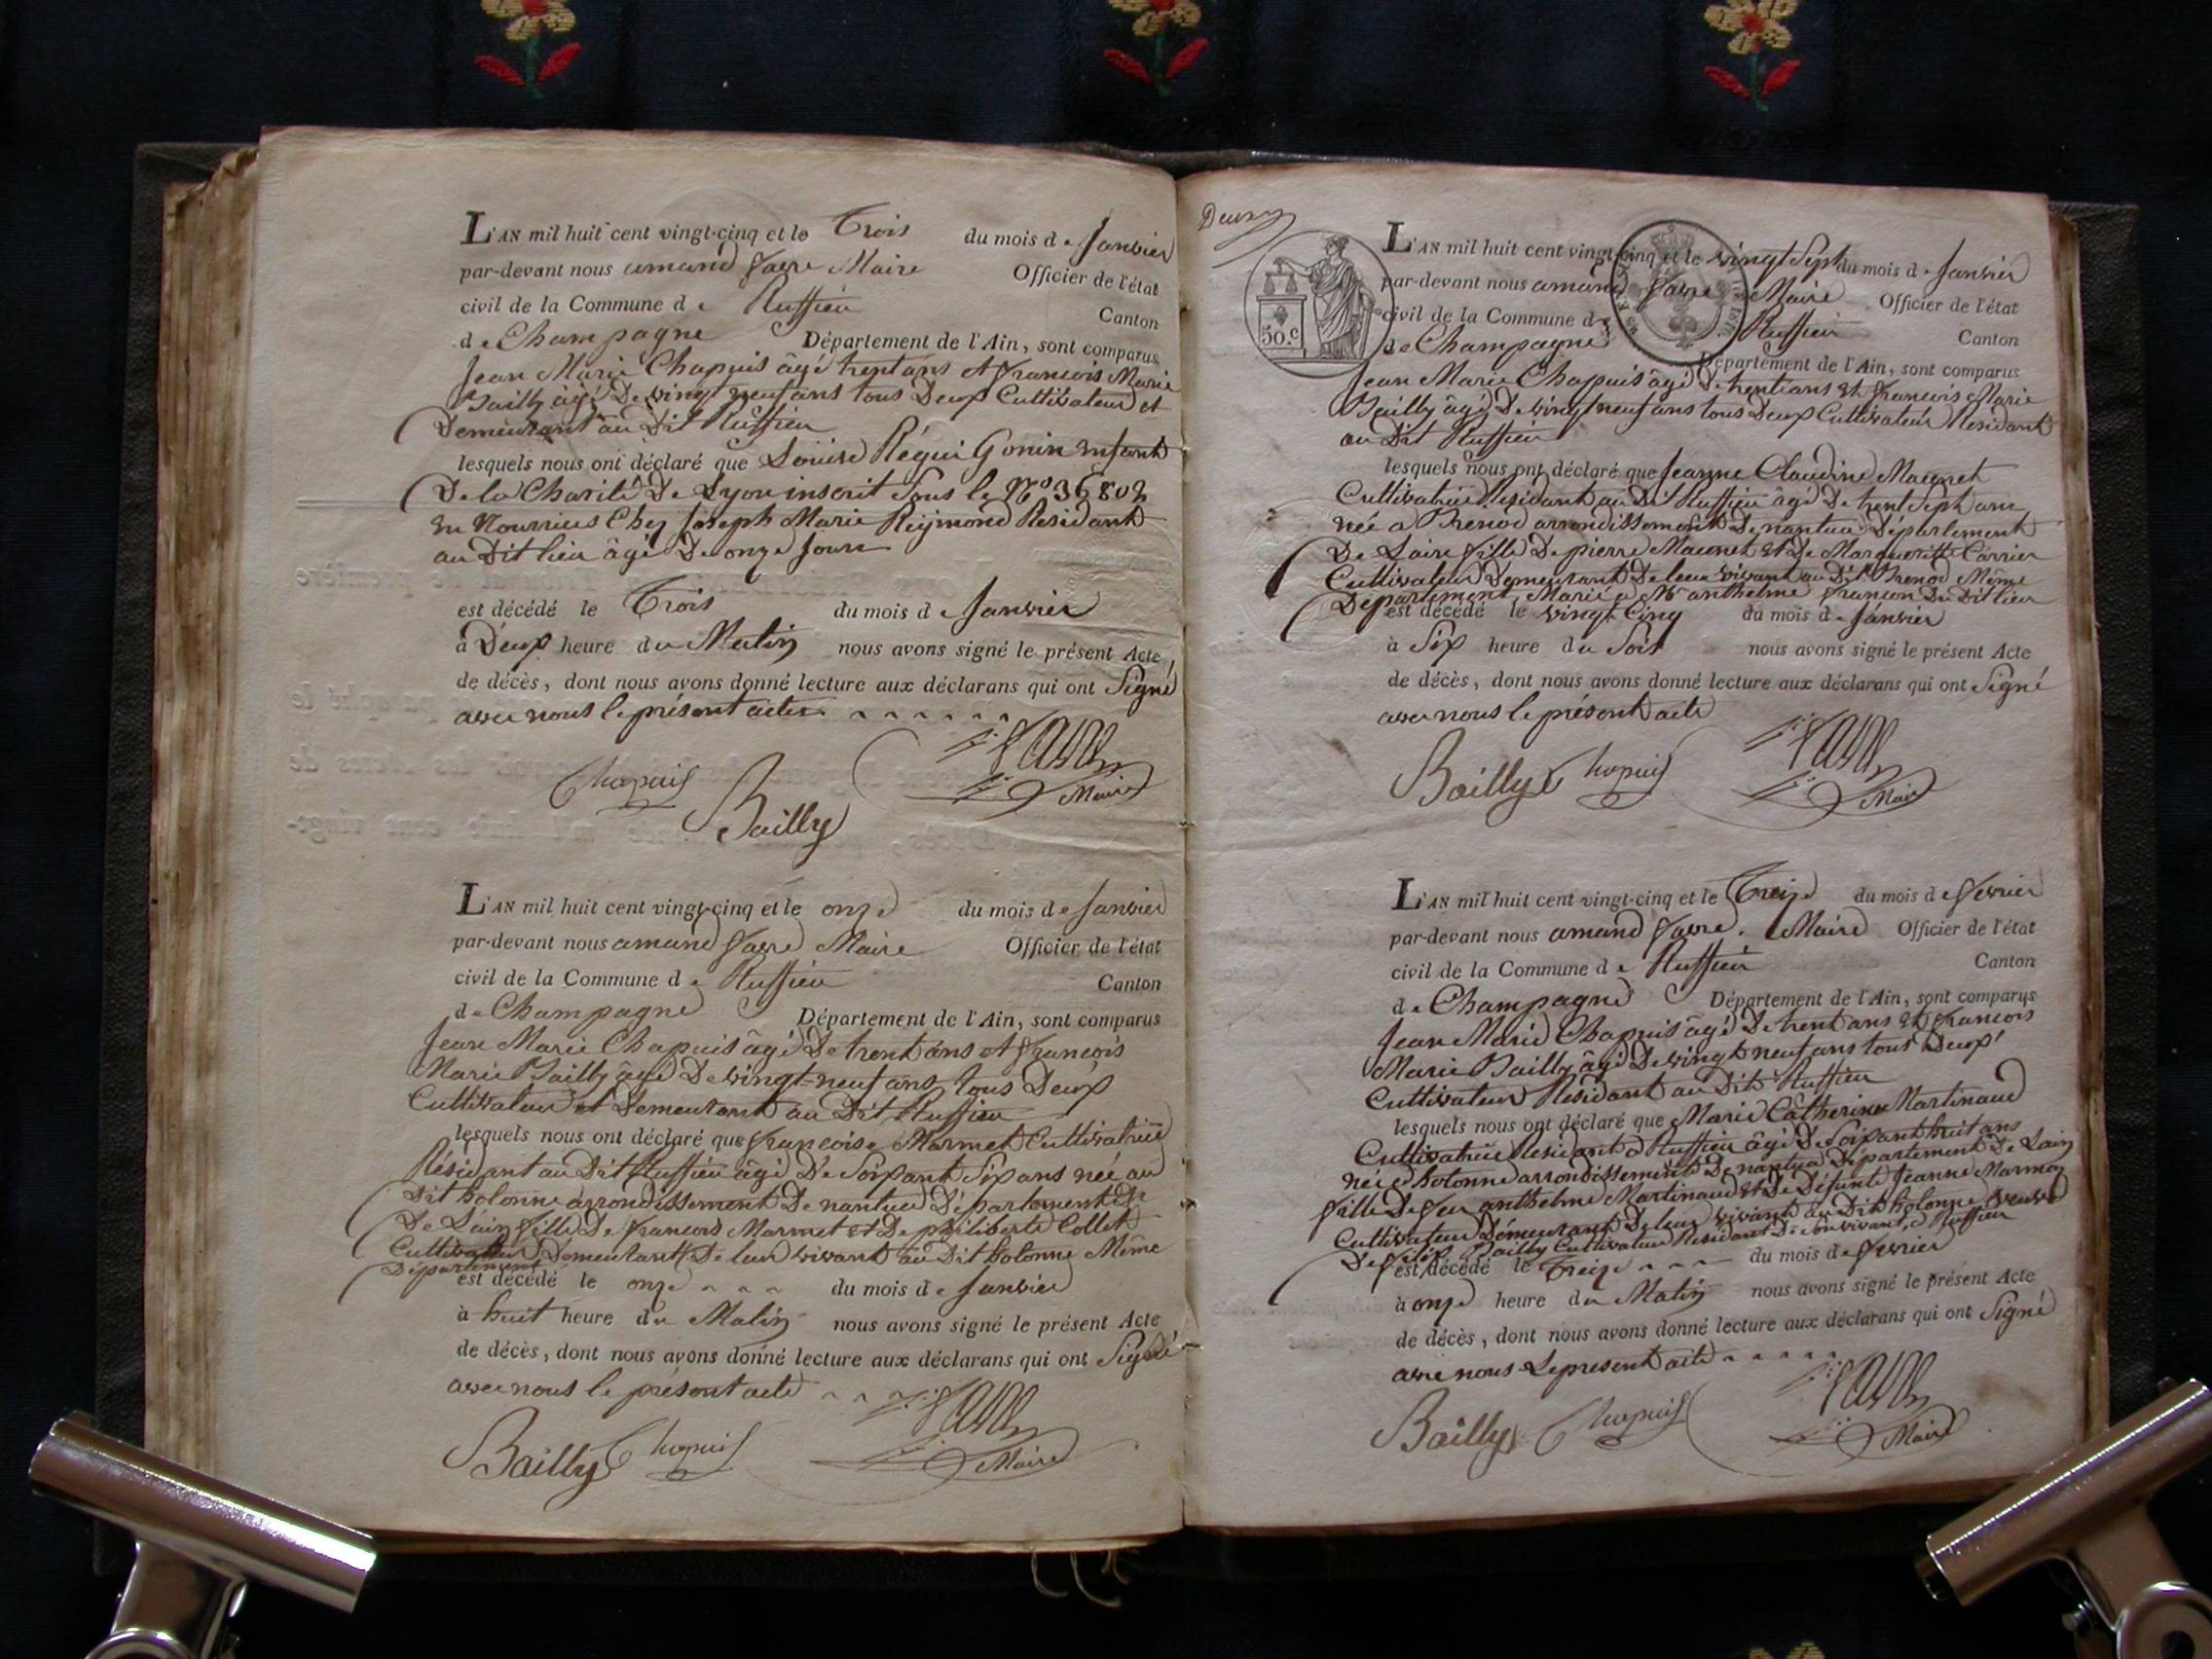 L'AN mil huit cent vingt-cinq et le Trois du mois de Janvier
par-devant nous amand favre Maire Officier de l'état
civil de la Commune de Ruffieu Canton
de Champagne Département de l'Ain, sont comparus
Jean Marie Chapuis âgé trent ans et francois Marie
Bailly âgé De vingt neuf ans tous Deux Cultivateur et
Demeurant au Dit Ruffieu
lesquels nous ont déclaré que Louise Régui Gonin enfant
De la Charité De Lyon inscrit sous le No 36802
en Nourrices Chez Joseph Marie Reymond Residant
au Dit lieu âgé De onze Jours
est décédé le Trois du mois de Janvier
à Deux heure du Matin nous avons signé le présent Acte
de décès, dont nous avons donné lecture aux déclarans qui ont Signé
avec nous le présent acte
Chapuis Bailly favre Maire
L'AN mil huit cent vingt-cinq et le onze du mois de Janvier
par-devant nous amand favre Maire Officier de l'état
civil de la Commune de Ruffieu Canton
de Champagne Département de l'Ain, sont comparus
Jean Marie Chapuis âgé De trent ans et francois
Marie Bailly âgé De vingt-neuf ans tous Deux
Cultivateur et Demeurant au Dit Ruffieu
lesquels nous ont déclaré que francoise Marmet Cultivatrice
Résidant au Dit Ruffieu âgé De Soixant Six ans née au
Dit hotonne arrondissement De nantua Département
De Lain fille De francois Marmet et De philiberte Collet
Cultivateur Demeurant De leur vivant au Dit hotonne Même
Département
est décédé le onze du mois de Janvier
à huit heure du Matin nous avons signé le présent Acte
de décès, dont nous avons donné lecture aux déclarans qui ont Signé
avec nous le présent acte
Bailly Chapuis favre Maire
Deux
50.c
L'AN mil huit cent vingt-cinq et le vingt Sept du mois de Janvier
par-devant nous amand favre Maire Officier de l'état
civil de la Commune de Ruffieu Canton
de Champagne Département de l'Ain, sont comparus
Jean Marie Chapuis âgé De trent ans et francois Marie
Bailly âgé De vingt neuf ans tous Deux Cultivateur Residant
au Dit Ruffieu
lesquels nous ont déclaré que Jeanne Claudine Maconet
Cultivatrice Residant au Dit Ruffieu âgé De trent Sept ans
née a Brenod arrondissement De nantua Département
De Lain fille De pierre Maconet et De Margueritte Carrier
Cultivateur Demeurant De leur vivant au Dit Brenod Même
Département, Marié a Mr anthelme francon Du Dit lieu
est décédé le vingt Cinq du mois de Janvier
à Six heure du Soir nous avons signé le présent Acte
de décès, dont nous avons donné lecture aux déclarans qui ont Signé
avec nous le présent acte
Bailly Chapuis favre Maire
L'AN mil huit cent vingt-cinq et le Treize du mois de fevrier
par-devant nous amand favre. Maire Officier de l'état
civil de la Commune de Ruffieu Canton
de Champagne Département de l'Ain, sont comparus
Jean Marie Chapuis âgé De trent ans et francois
Marie Bailly âgé De vingt neuf ans tous Deux
Cultivateur Residant au Dit Ruffieu
lesquels nous ont déclaré que Marie Catherine Martinaud
Cultivatrice Residant a Ruffieu âgé De Soixant huit ans
née a hotonne arrondissement De nantua Département De Lain
fille De feu anthelme Martinaud et De Défunte Jeanne Marmoz
Cultivateur Demeurant De leur vivant au Dit hotonne veuve
De félix Bailly Cultivateur Residant De Son vivant a Ruffieu
est décédé le Treize du mois de fevrier
à onze heure du Matin nous avons signé le présent Acte
de décès, dont nous avons donné lecture aux déclarans qui ont Signé
avec nous Le present acte
Bailly Chapuis favre Maire